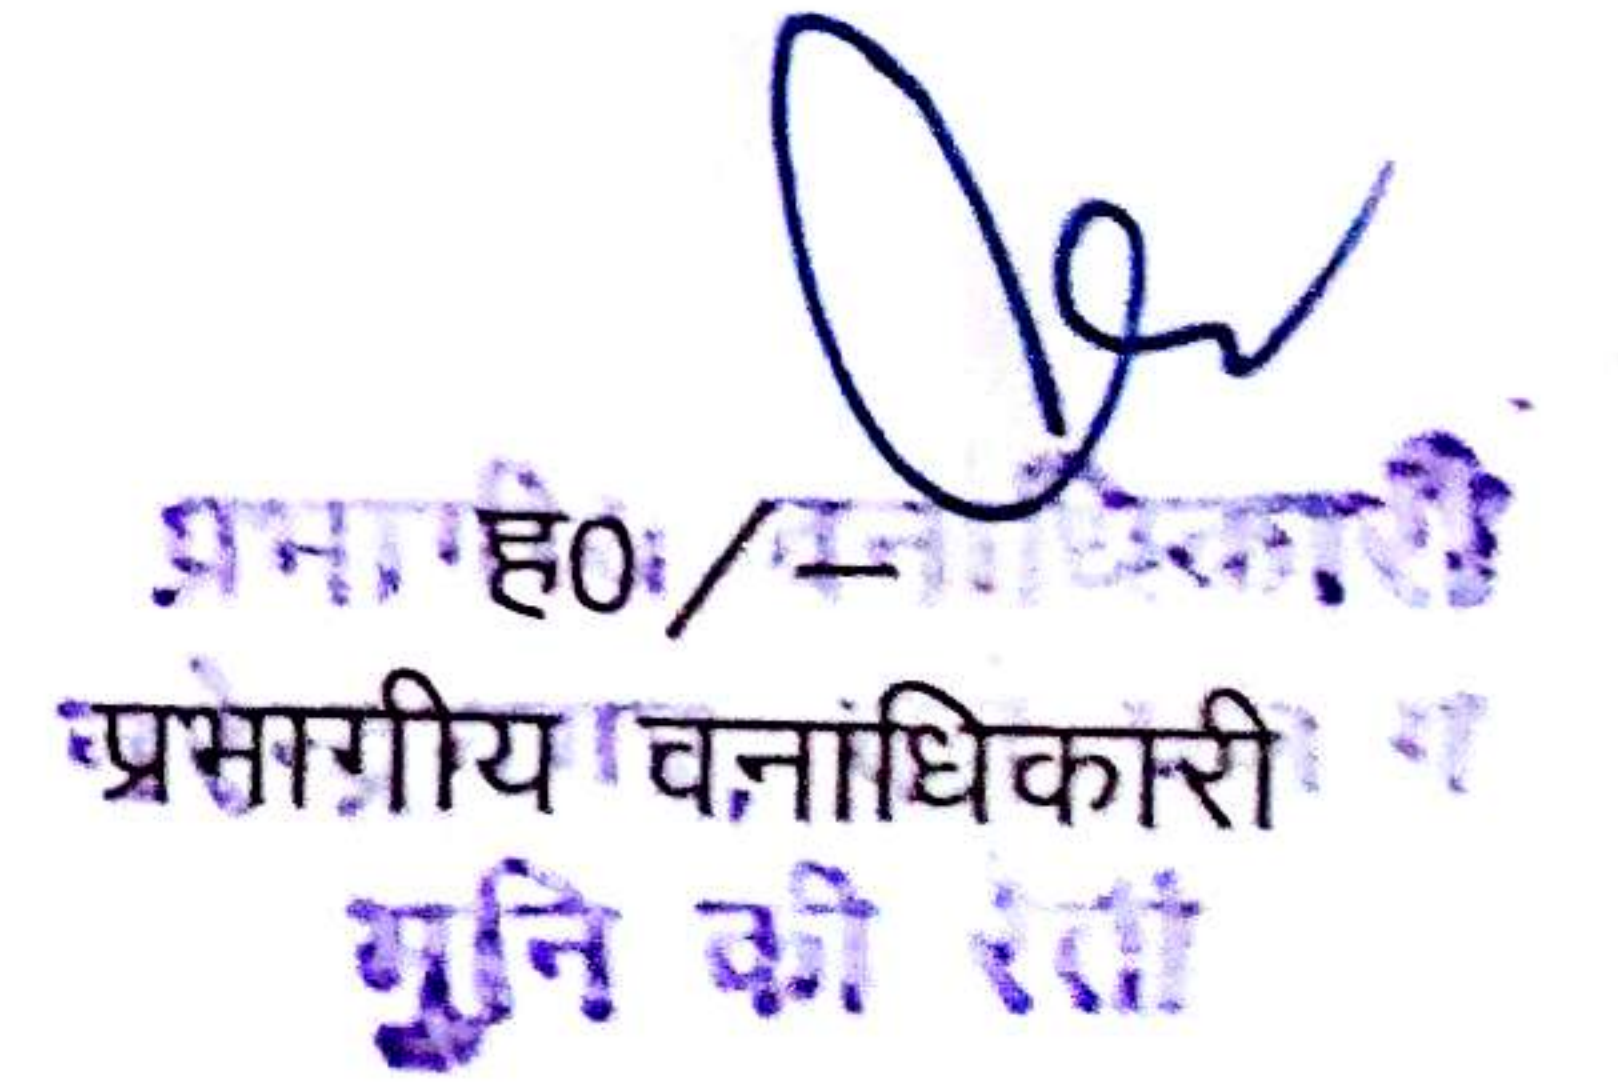 प्रभागीय वनाधिकारी
ह०/—
प्रभागीय वनाधिकारी
मुनि की रेती